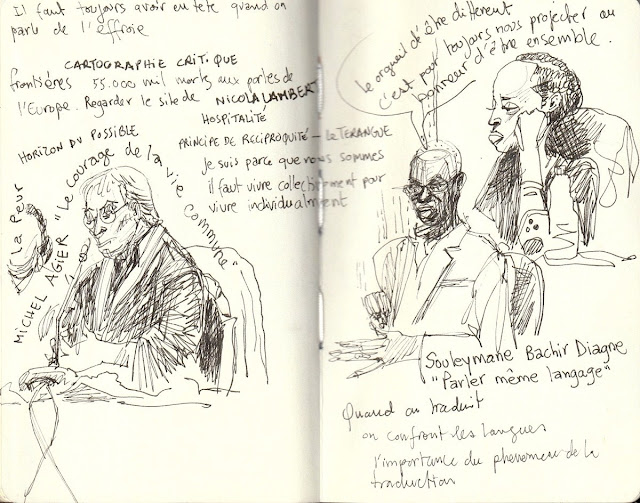 Il faut toujours avoir en tete quand on
parle de l'effroie
CARTOGRAPHIE CRITIQUE
frontiéres 55.000 mil morts aux portes de
l'Europe. Regarder le site de NICOLA LAMBERT
HOSPITALITÉ
HORIZON DU POSSIBLE
PRINCIPE DE RECIPROQUITÉ - La TERANGUE
Je suis parce que nous sommes
il faut vivre collectivement pour
vivre individualment
La Peur
MICHEL AGIER "Le courage de la vie commune"
Le orgueil d'être different
c'est pour toujours nous projecter au
bonheur d'être ensemble.
Souleymane Bachir Diagne
"Parler même langage"
Quand on traduit
on confront les langues
l'importance du phenomeur de la
traduction